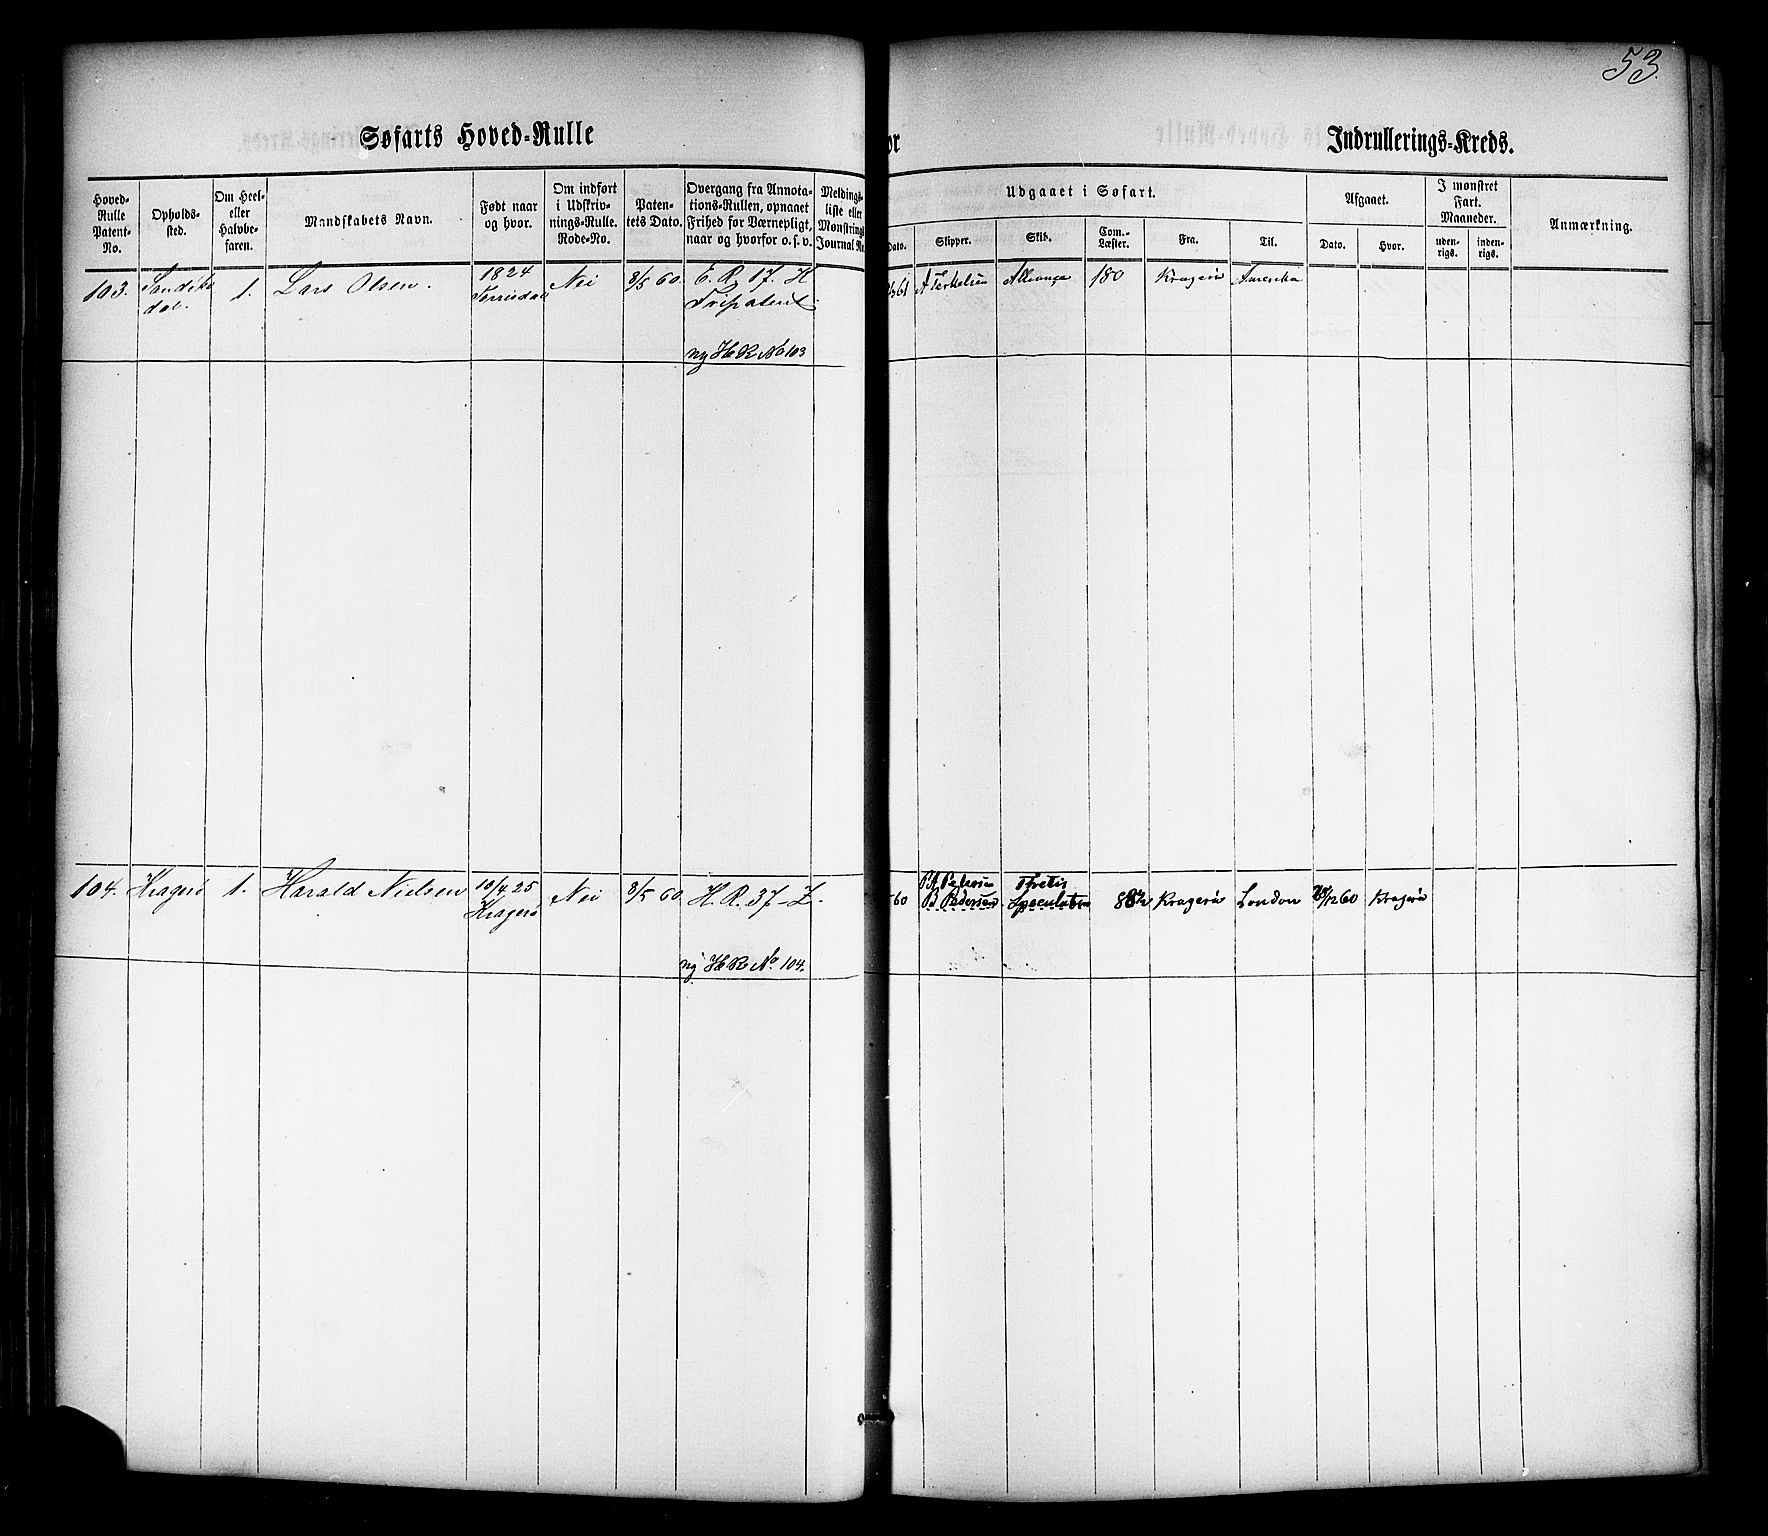 53.
Søfarts Hoved-Rulle
or
Indrullerings-Kreds.
Hoved-Rulle Patent-No.
Opholdssted.
Om Heel- eller Halvbefaren.
Mandskabets Navn.
Født naar og hvor.
Om indført i Udskrivnings-Rulle. Rode-No.
Patentets Dato.
Overgang fra Annotations-Rullen, opnaaet Frihed for Værnepligt, naar og hvorfor o. s. v.
Meldingsliste eller Mønstrings Journal No.
Udgaaet i Søfart.
Dato.
Skipper.
Skib.
Com.-Læster.
Fra.
Til.
Afgaaet.
Dato.
Hvor.
I mønstret Fart. Maaneder.
udenrigs.
indenrigs.
Anmærkning.
103. Sandøke 1. Lars Olsen. 1824 Nei 8/5 60 E. R. 17. H 61 A Terkelsen Alliance 180 Kragerø Amerika
dal. Tørrisdal Fripatent
ny H R No 103
104. Kragerø 1. Harald Nielsen 10/4 25 Nei 8/5 60 H. R. 37-2. Petersen Thetis
Kragerø 60 B Pedersen Speculation Kragerø London /12 60 Kragerø
ny H R No. 104.